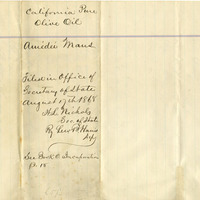 California Pure
Olive Oil
Amédée Mans
Filed in Office of
Secretary of State
August 17th 1868
H.L. Nichols
Sec. of State
By Geo. B. Hans
Dep
See Book C Incorporation
p. 18